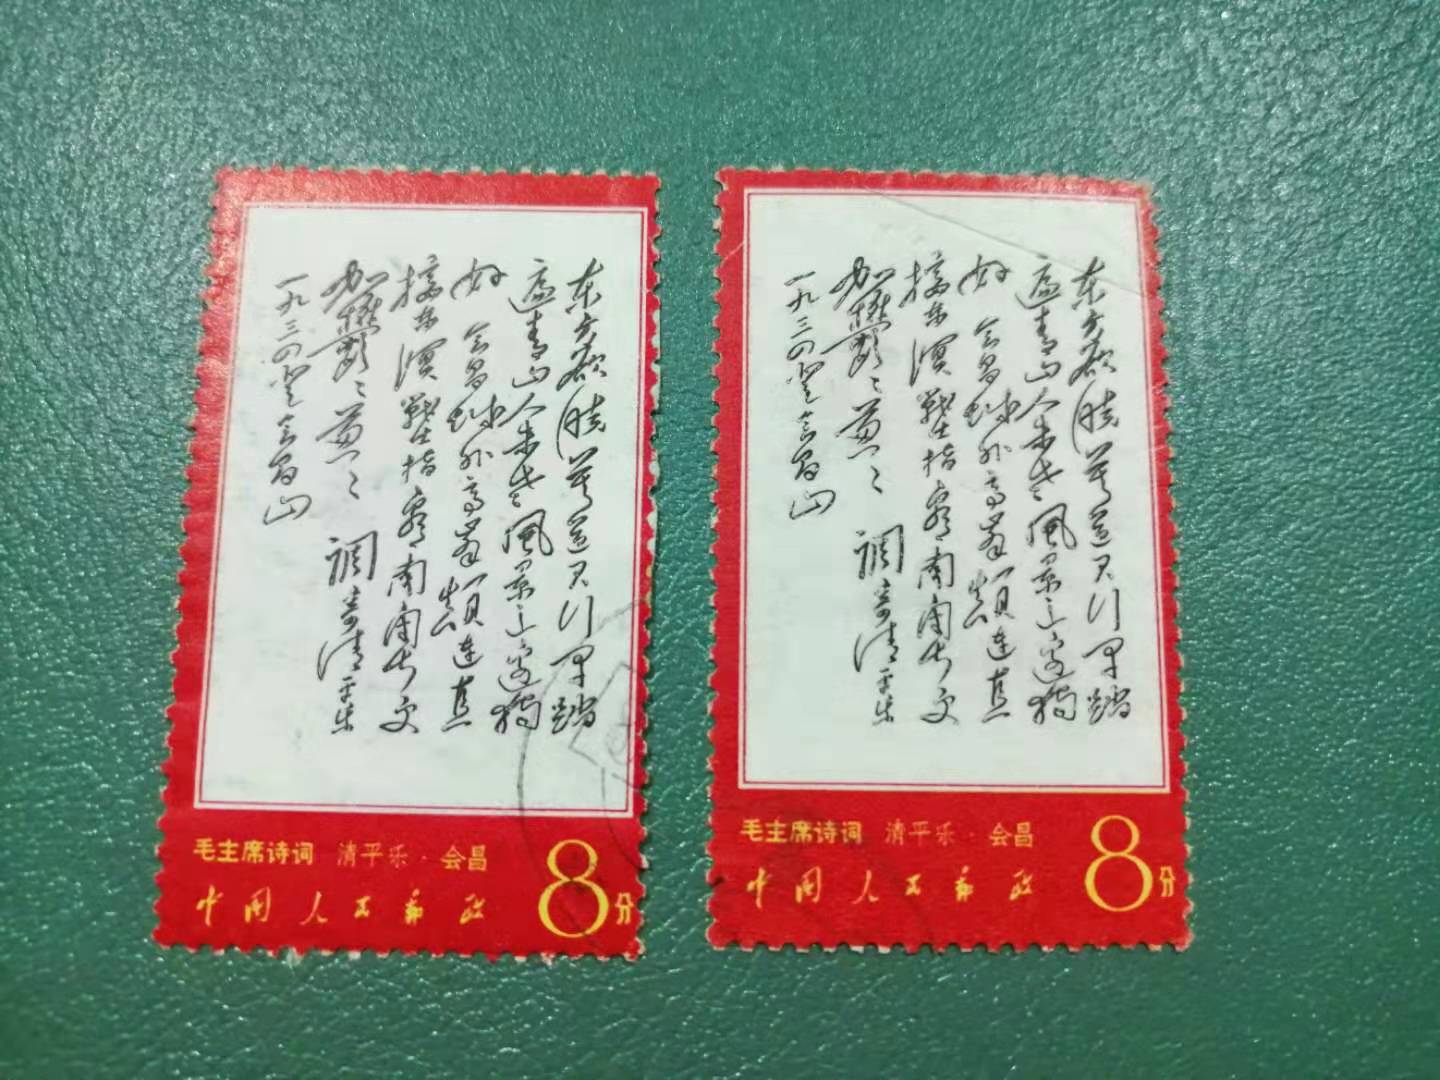 东方欲晓莫道君行早踏
遍青山人未老風景这边独
好 会昌城外高峯颠连直
接东溟戰士指看南粤更
加鬱〻葱〻 調寄清平乐
一九三四登会昌山
毛主席诗词 清平乐·会昌
中国人民邮政
8分
东方欲晓莫道君行早踏
遍青山人未老風景这边独
好 会昌城外高峯颠连直
接东溟戰士指看南粤更
加鬱〻葱〻 調寄清平乐
一九三四登会昌山
毛主席诗词 清平乐·会昌
中国人民邮政
8分